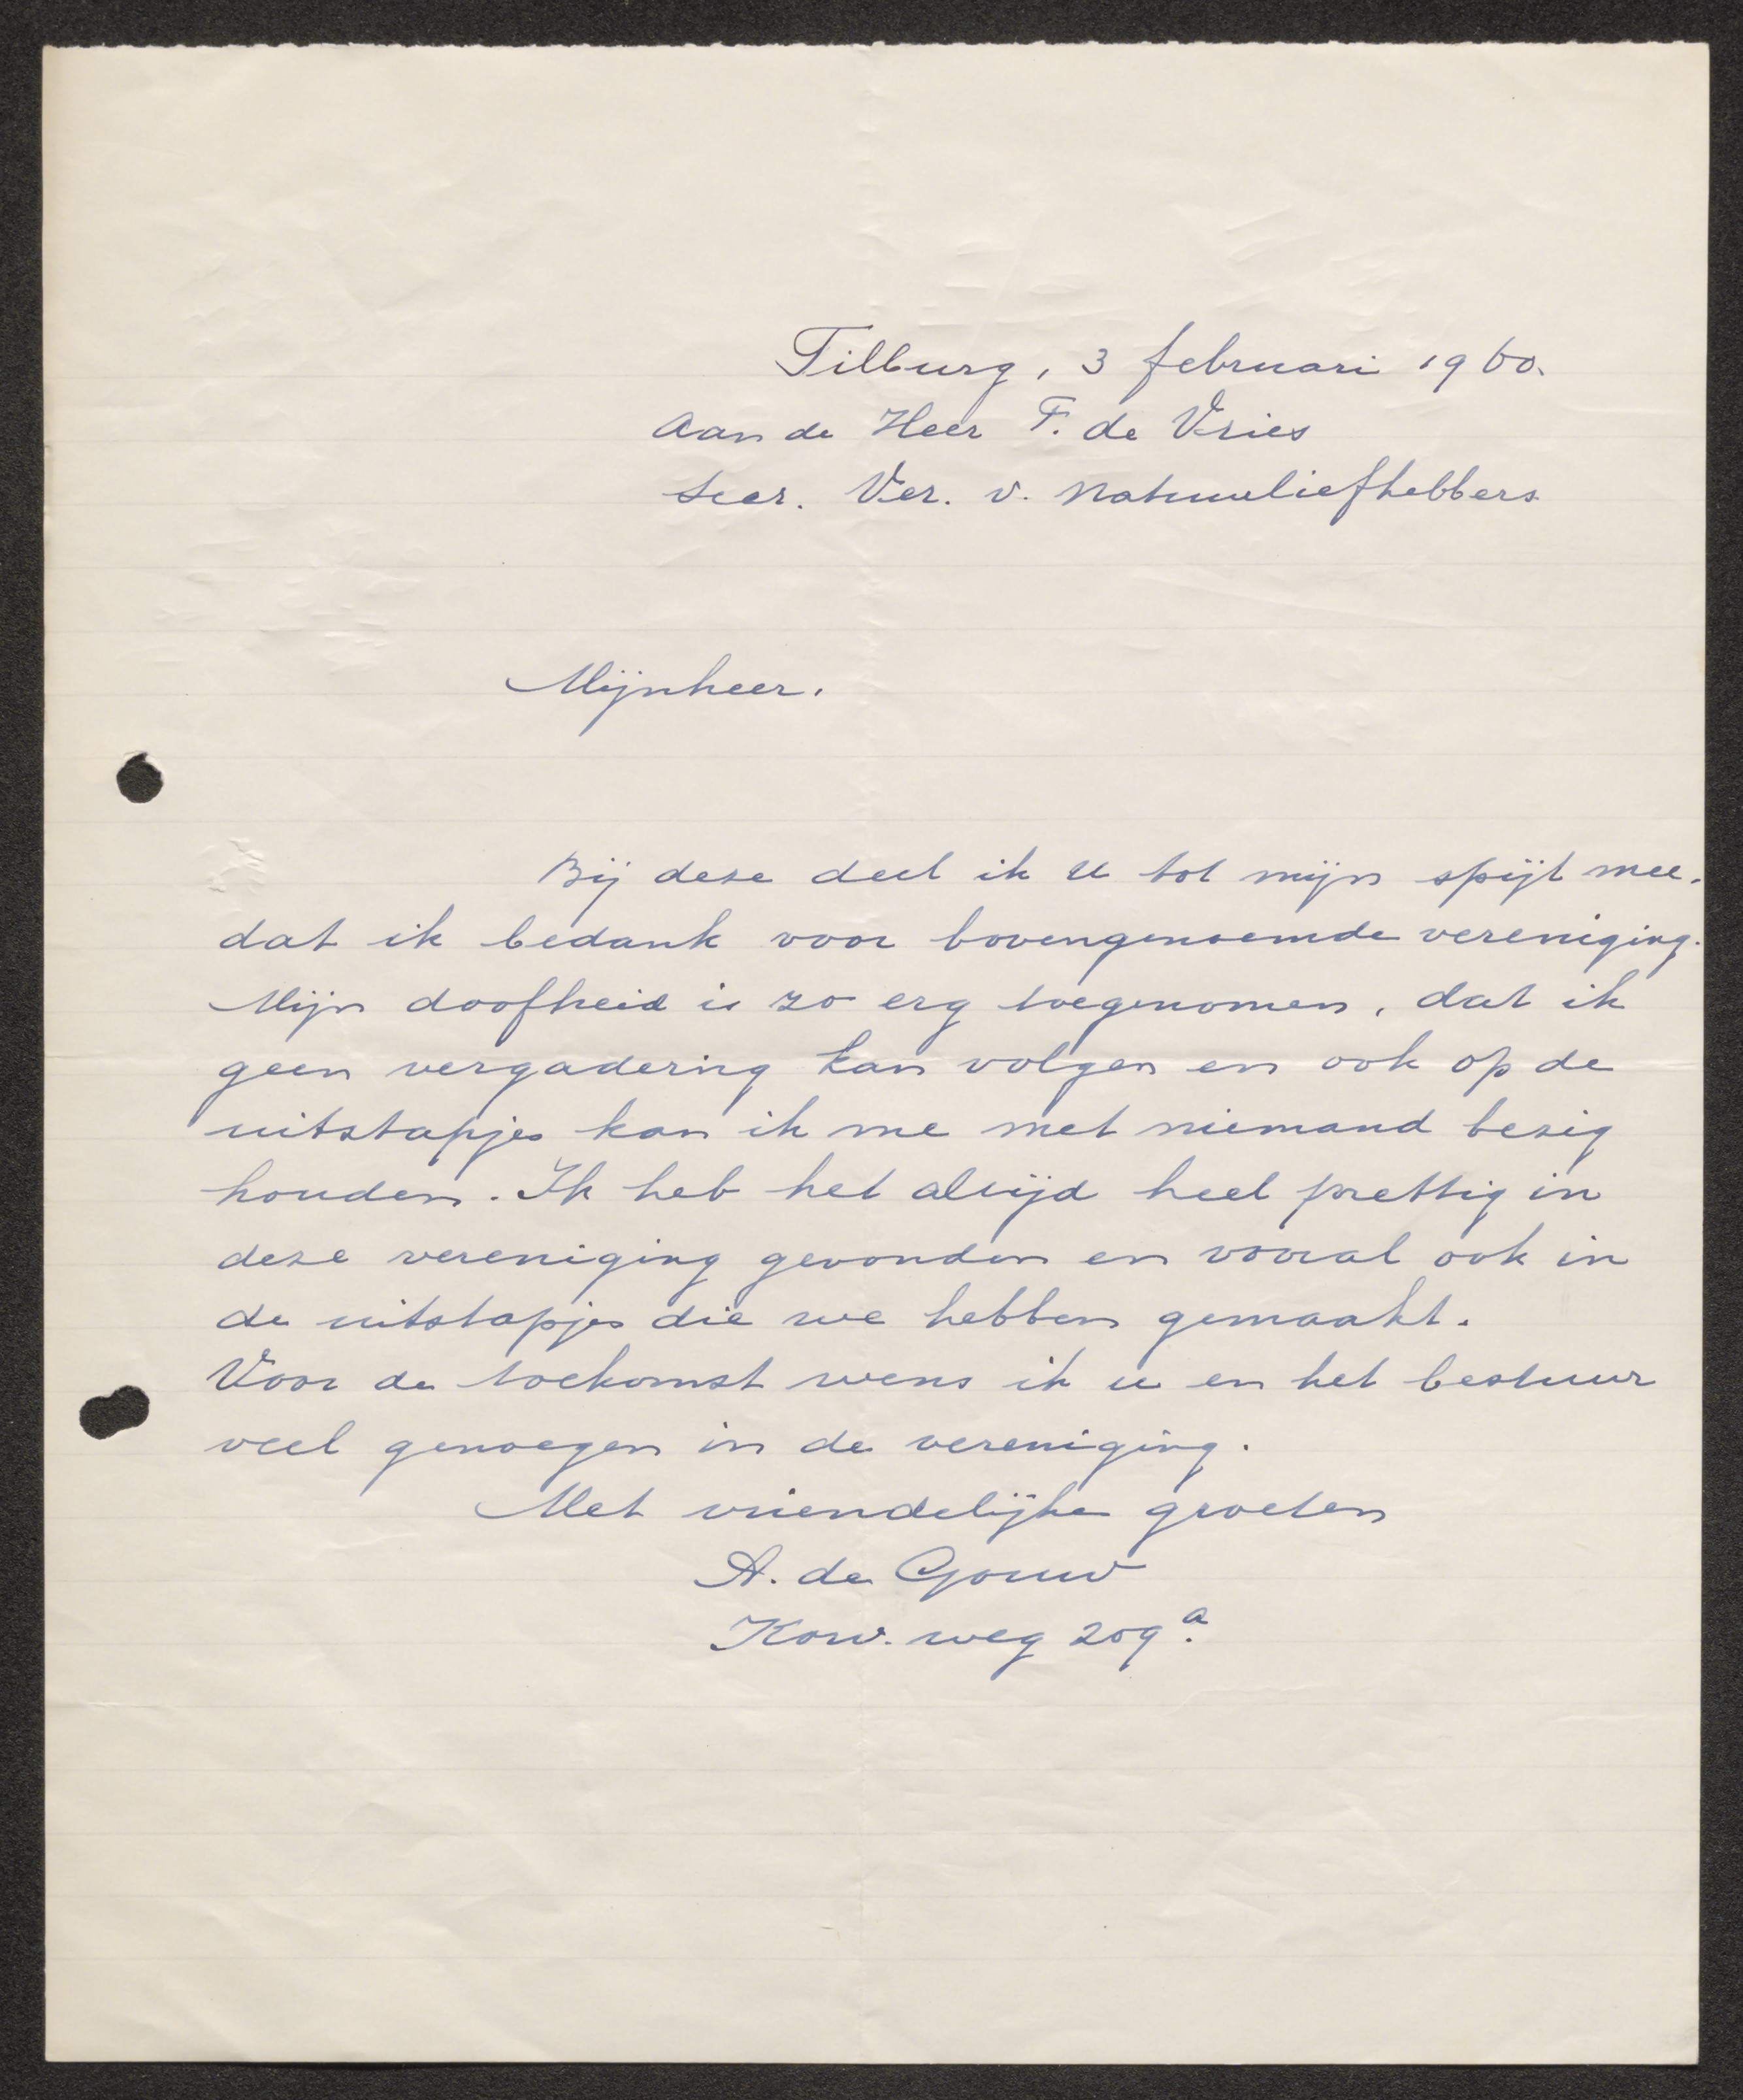 Tilburg, 3 februari 1960.
Aan de Heer F. de Vries
Secr. Ver. v. Natuurliefhebbers
Mijnheer.
Bij deze deel ik U tot mijn spijt mee.
dat ik bedank voor bovengenoemde vereniging.
Mijn doofheid is zo erg toegenomen, dat ik
geen vergadering kan volgen en ook op de
uitstapjes kan ik me met niemand bezig
houden. Ik heb het altijd heel prettig in
deze vereniging gevonden en vooral ook in
de uitstapjes die we hebben gemaakt.
Voor de toekomst wens ik u en het bestuur
veel genoegen in de vereniging.
Met vriendelijke groeten
A. de Gouw
Korv. weg 209a.